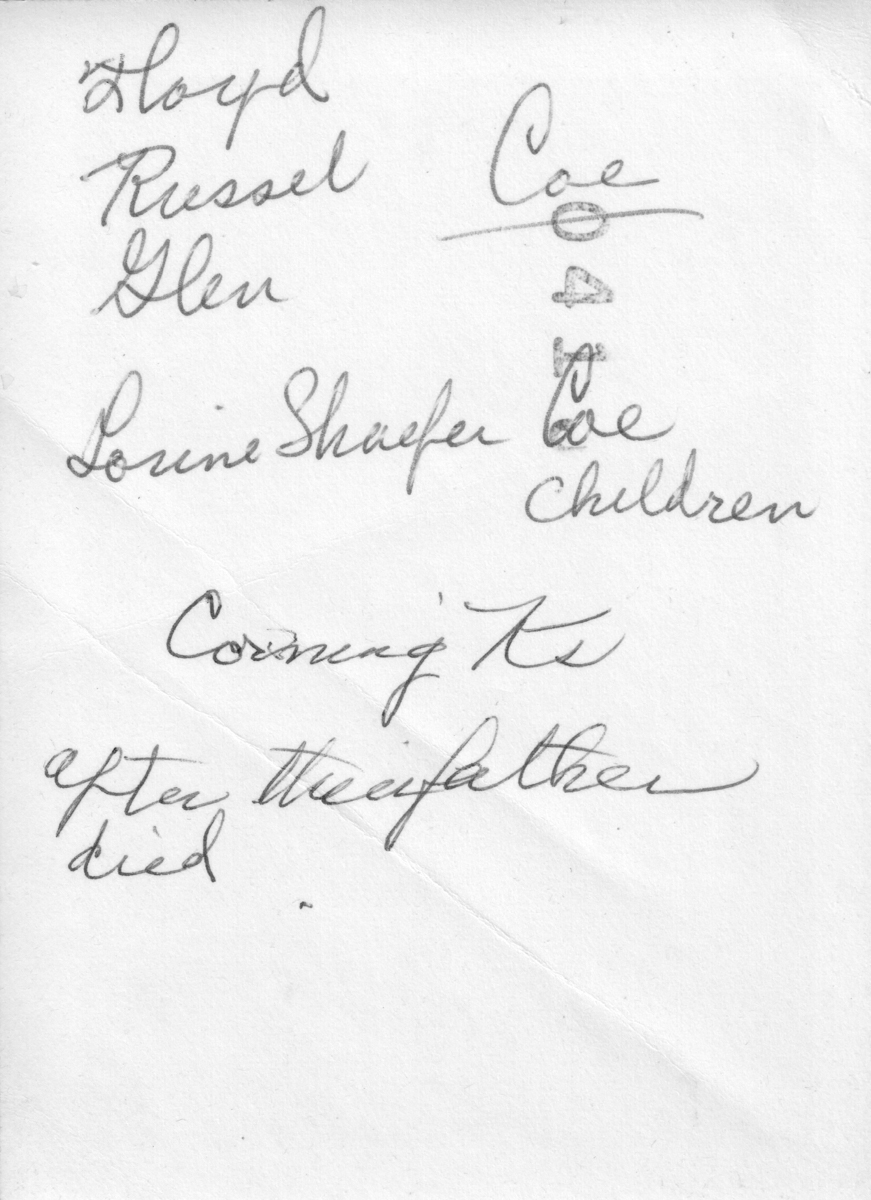 Floyd
Russel Coe
Glen
Lorine Shaefer Coe
children
Corning Ks
after their father
died
041